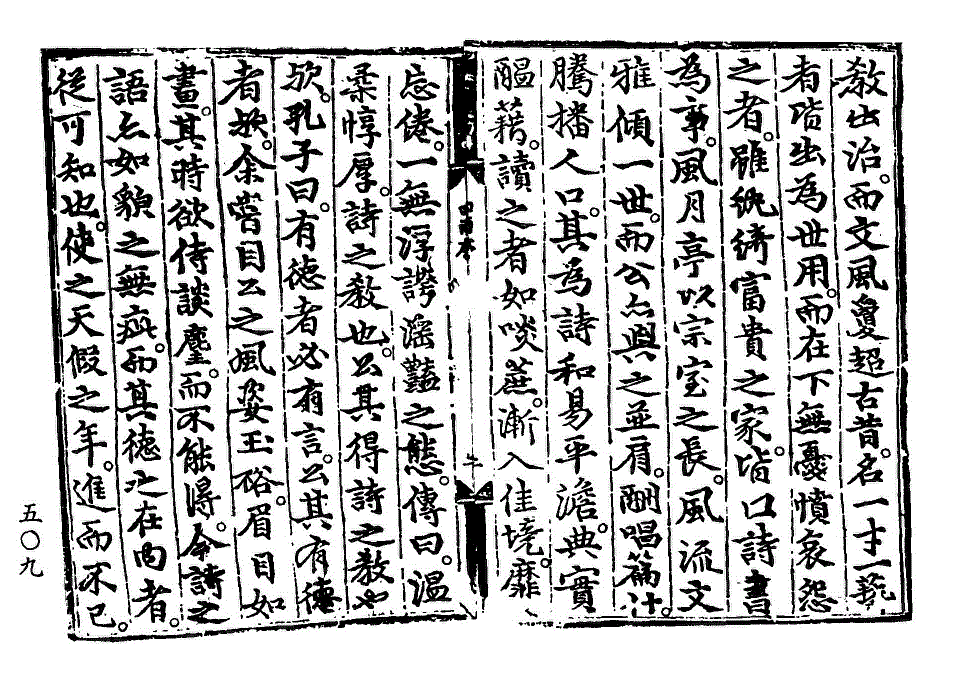 教出治。而文風敻超古昔。名一才一藝
者皆出為世用。而在下無憂憤哀怨
之者。雖紈綺富貴之家。皆口詩書
為事。風月亭以宗室之長。風流文
雅傾一世。而公亦與之並肩。酬唱篇什。
騰播人口。其為詩和易平澹。典實
醞藉。讀之者如啖蔗。漸入佳境。靡
忘倦。一無浮誇滛豔之態。傳曰。溫
柔惇厚。詩之教也。公其得詩之教也
欤。孔子曰。有德者必有言。公其有德
者欤。余嘗目公之風姿玉裕。眉目如
畫。其時欲侍談麈。而不能得。今詩之
語亦如貌之無疵。而其德之在內者。
從可知也。使之天假之年。進而不已。
五〇九